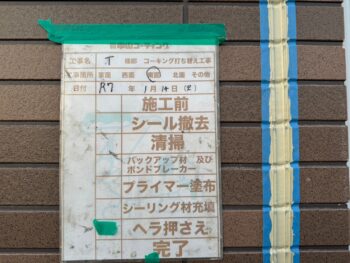 工事名 T 様邸 コーキング打ち替え工事
工事箇所 東面 西面 南面 北面 その他
日付 R7 年 1月14日(火)
施工前
シール撤去
清掃
バックアップ材 及び
ボンドブレーカー
プライマー塗布
シーリング材充填
ヘラ押さえ
完了